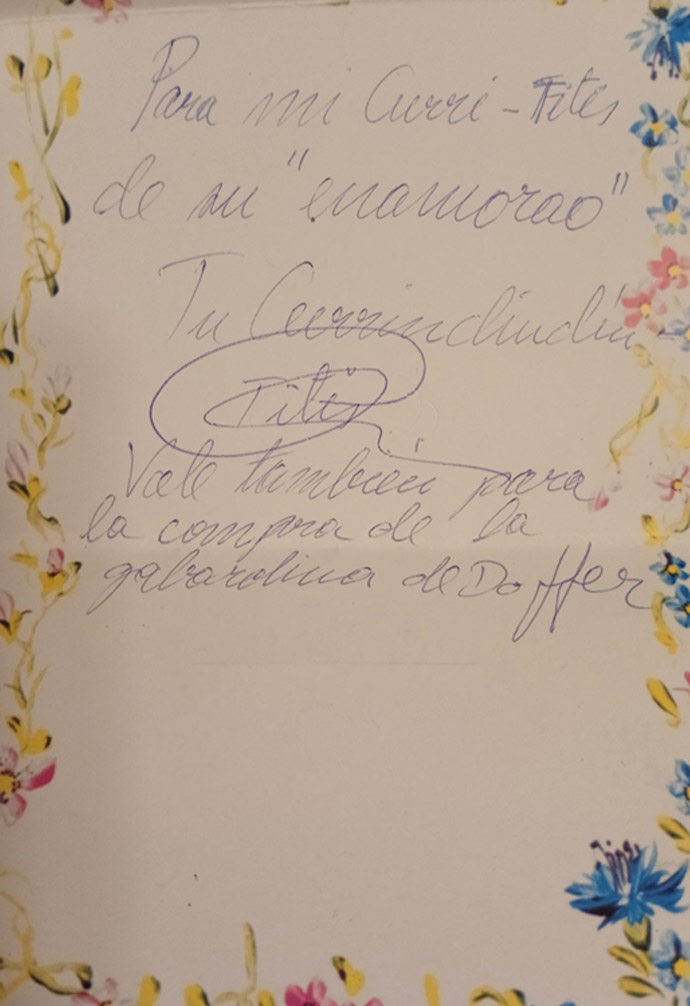 Para mi Curri-Fitis
de su "enamorao"
Tu Currindindín
Pitis
Vale también para
la compra de la
gabardina de Doffer